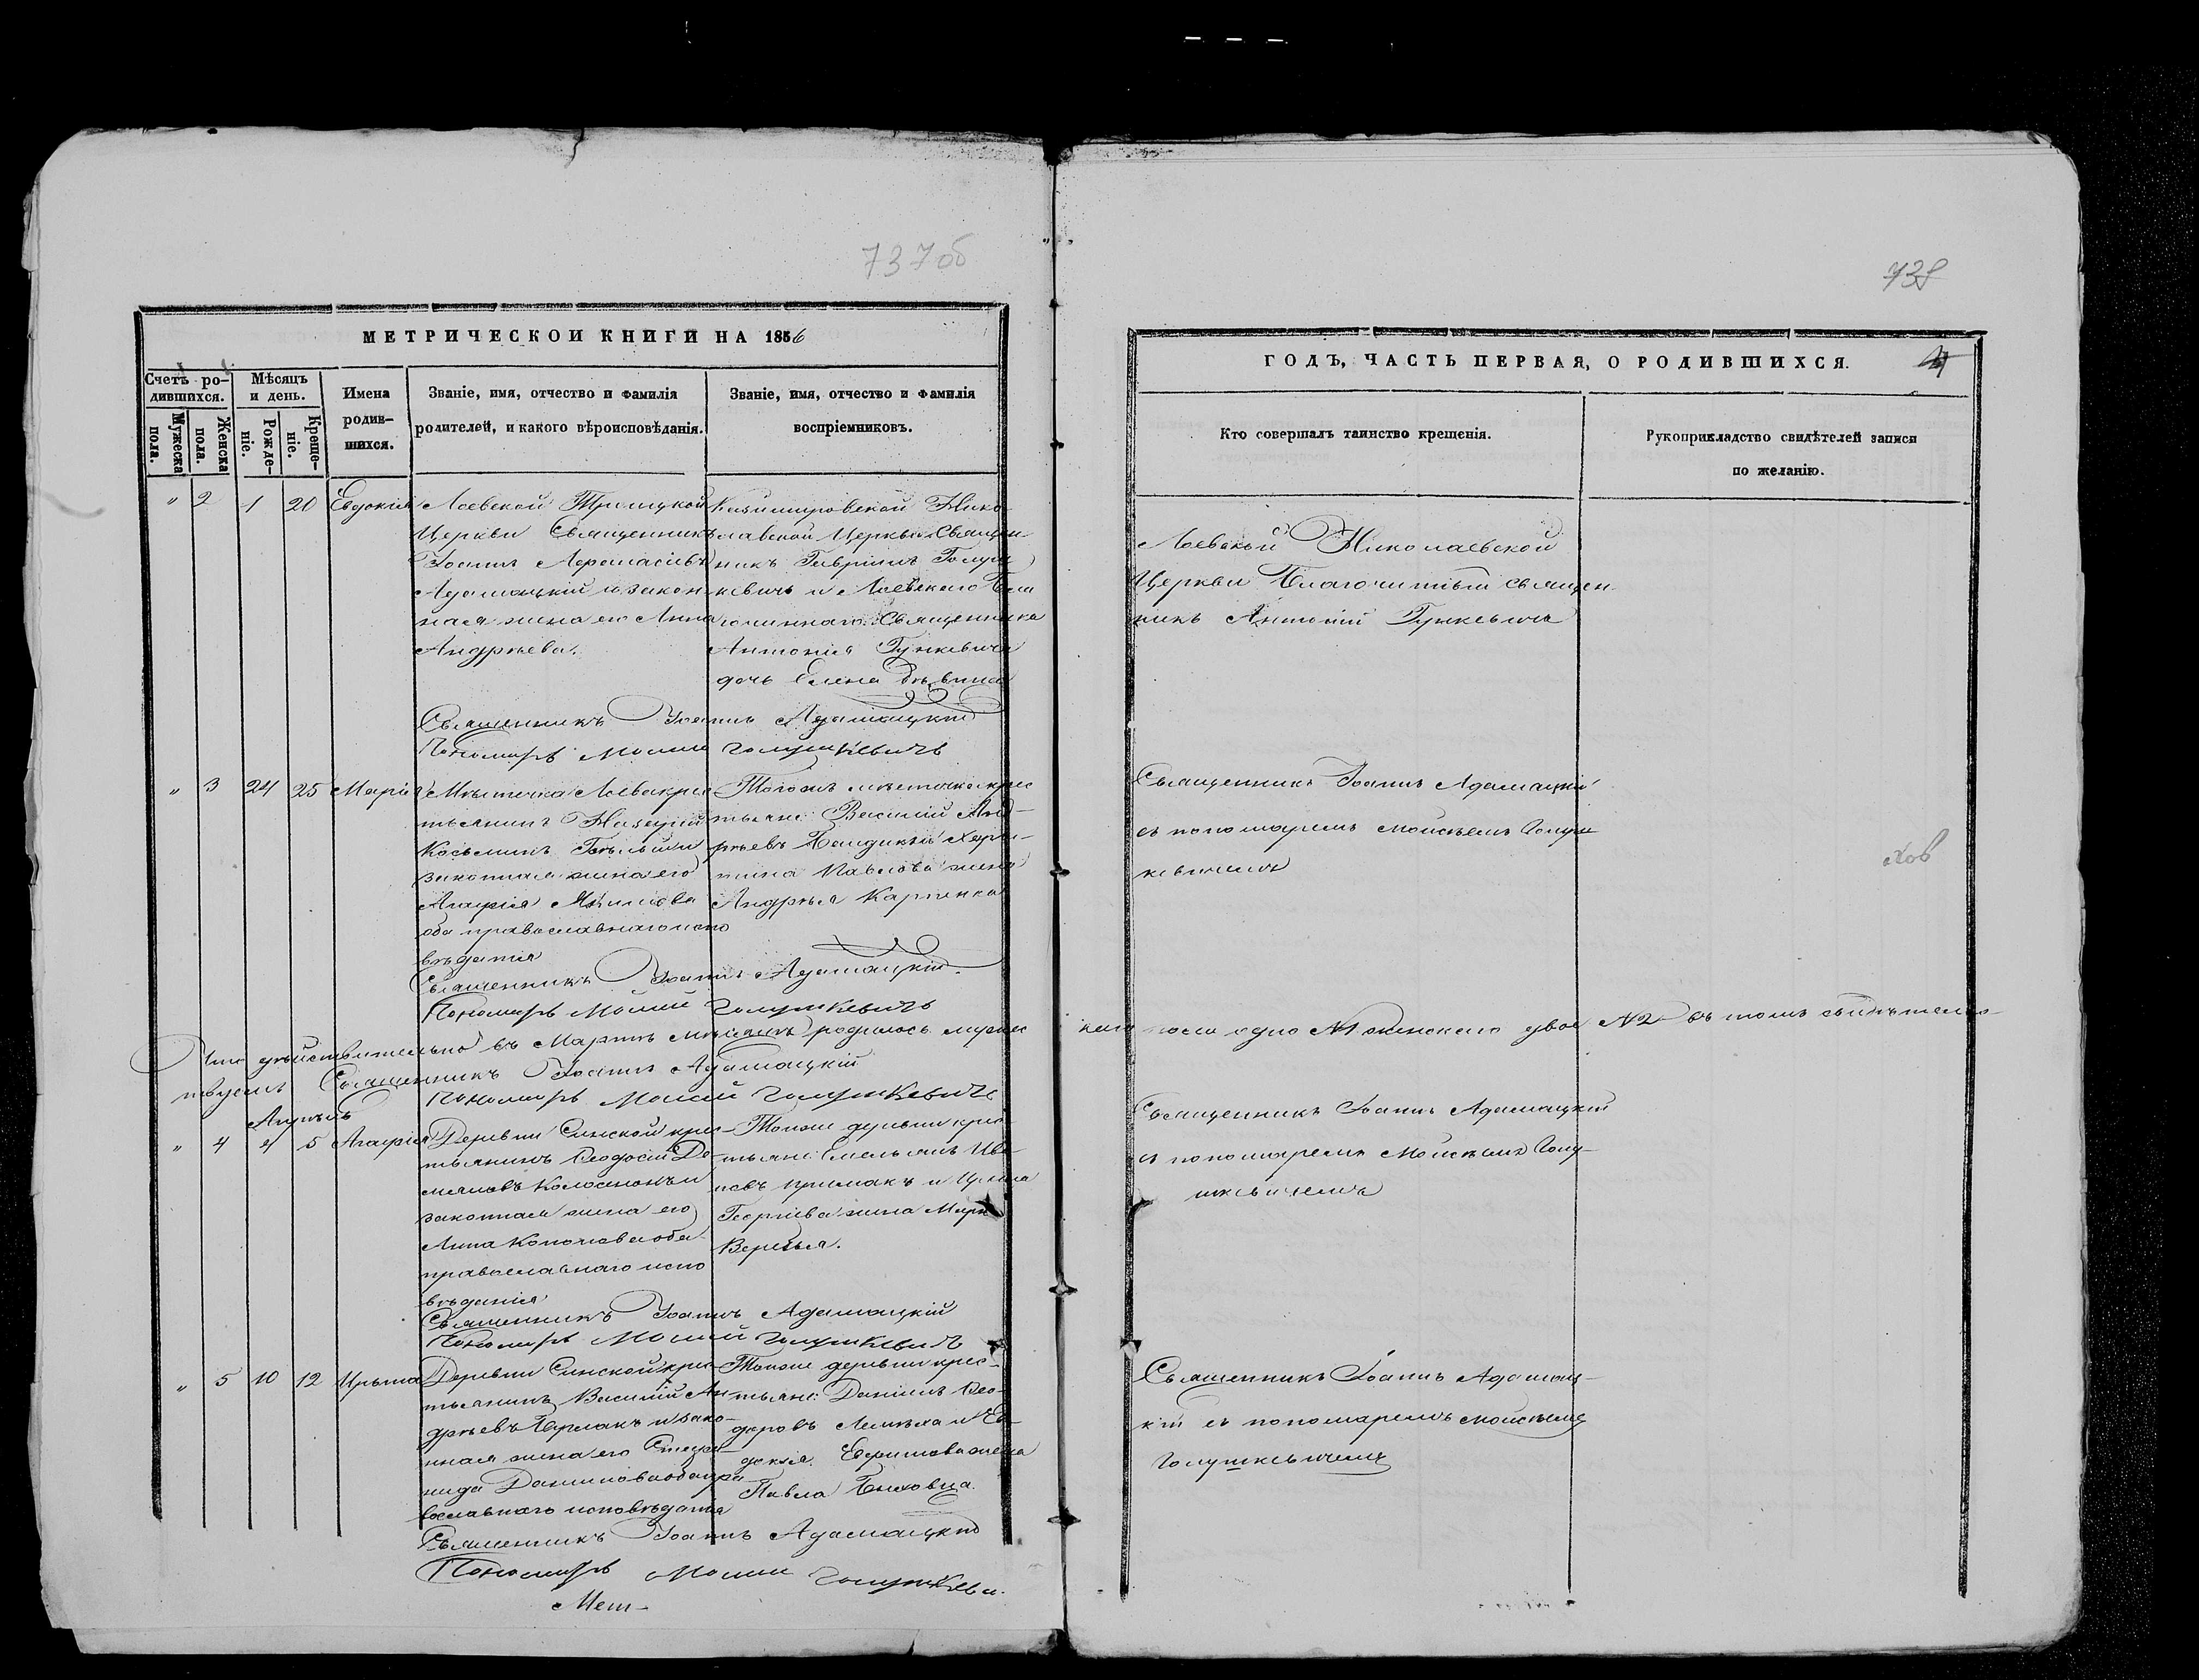 737об
МЕТРИЧЕСКОИ КНИГИ НА 1856
Счетъ ро-
дившихся.
Мужеска
пола.
Женска
пола.
Мѣсяцъ
и день.
Рожде-
ніе.
Креще-
ніе.
Имена
родив-
шихся.
Званіе, имя, отчество и фамилія
родителей, и какого вѣроисповѣданія.
Званіе, имя, отчество и фамилія
воспріемниковъ.
" 2 1 20 Евдокія
Лоевской Троицкой
Церкви Священникъ
Іоаннъ
Адамацкій и закон-
ная жена его Анна
Андрѣева.
Казимировской Нико-
лаевской Церкви Священ-
никъ Гавріилъ Голуш-
кевичъ и Лоевскаго Бла-
гочиннаго Священника
Антонія Гункевича
дочь Елена дѣвица
Священникъ Іоаннъ Адамацкій
Пономарь Моисей Голушкевичъ
" 3 24 25 Марія
Мѣстечка Лоева крес-
тьянинъ Назарій
Косьминъ и
законная жена его
Агафія
оба православнаго испо
вѣданія
Тогожъ мѣстечка крес
тьяне: Василій Анд-
рѣевъ
Павлова жена
Андрѣя Карпенка
Священникъ Іоаннъ Адамацкій
Пономарь Моисей Голушкевичъ
Что дѣйствительно въ Мартѣ мѣсяцѣ родилось мужес
твуемъ Священникъ Іоаннъ Адамацкій
Пономарь Моисей Голушкевичъ
Апрѣль
" 4 4 5 Агафія
Деревни Синской крес-
тьянинъ Ѳеодосій Де-
мьяновъ и
законная жена его
Анна Кононова оба
православнаго испо
вѣданія
Тойже деревни крес-
тьяне: Емельянъ Ива-
новъ Примакъ и Ирина
Георгіева жена Марка
Священникъ Іоаннъ Адамацкій
Пономарь Моисей Голушкевичъ
" 5 10 12 Ирина
Деревни Синской крес-
тьянинъ Василій Ан-
дрѣевъ и зако-
нная жена его Степа-
нида Данилова оба пра
вославнаго исповѣданія
Тойже деревни крес-
тьяне: Даніилъ Ѳео-
доровъ и Ев-
докія Ефимова жена
Павла
Священникъ Іоаннъ Адамацкій
Пономарь Моисей Голушкеви.
Мет-
738
ГОДЪ, ЧАСТЬ ПЕРВАЯ, О РОДИВШИХСЯ.
Кто совершалъ таинство крещенія.
Рукоприкладство свидѣтелей записи
по желанію.
Лоевской Николаевской
Церкви Благочинный Священ-
никъ Антоній Гункевичъ
Священникъ Іоаннъ Адамацкій
съ пономаремъ Моисѣемъ Голуш
кевичемъ
каго пола одно №1 женскаго двое №2 въ томъ свидѣтельс-
Священникъ Іоаннъ Адамацкій
съ пономаремъ Моисѣемъ Голу-
шкевичемъ
Священникъ Іоаннъ Адамац-
кій съ пономаремъ Моисѣемъ
Голушкевичемъ